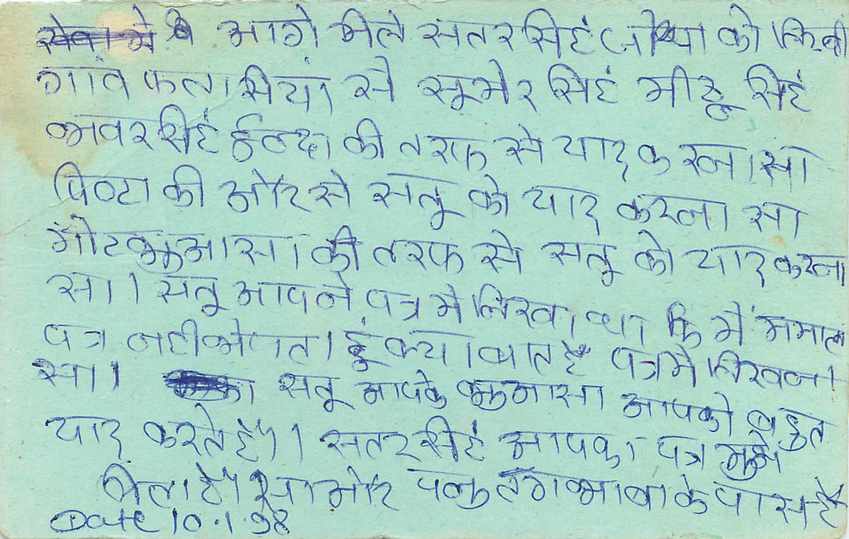 आगे मीले सतर सिहं जोधा को
गांव फलासिया से सूमेर सिहं मीठू सिहं
भवर सिहं ईन्दा की तरफ से याद करना सा
पिन्टा की और से सतू को याद करना सा
मोट भूआसा की तरफ से सतू को याद करना
सा। सतू आपने पत्र मे लिखा था कि मे
पत्र नही भेजता हुं क्या बात है पत्र मे लिखना
सा। सतू आपके भूआसा आपको बहुत
याद करते है। सतर सीहं आपका पत्र मुझे
मीला है सा और के पास है
Date 10.1.98